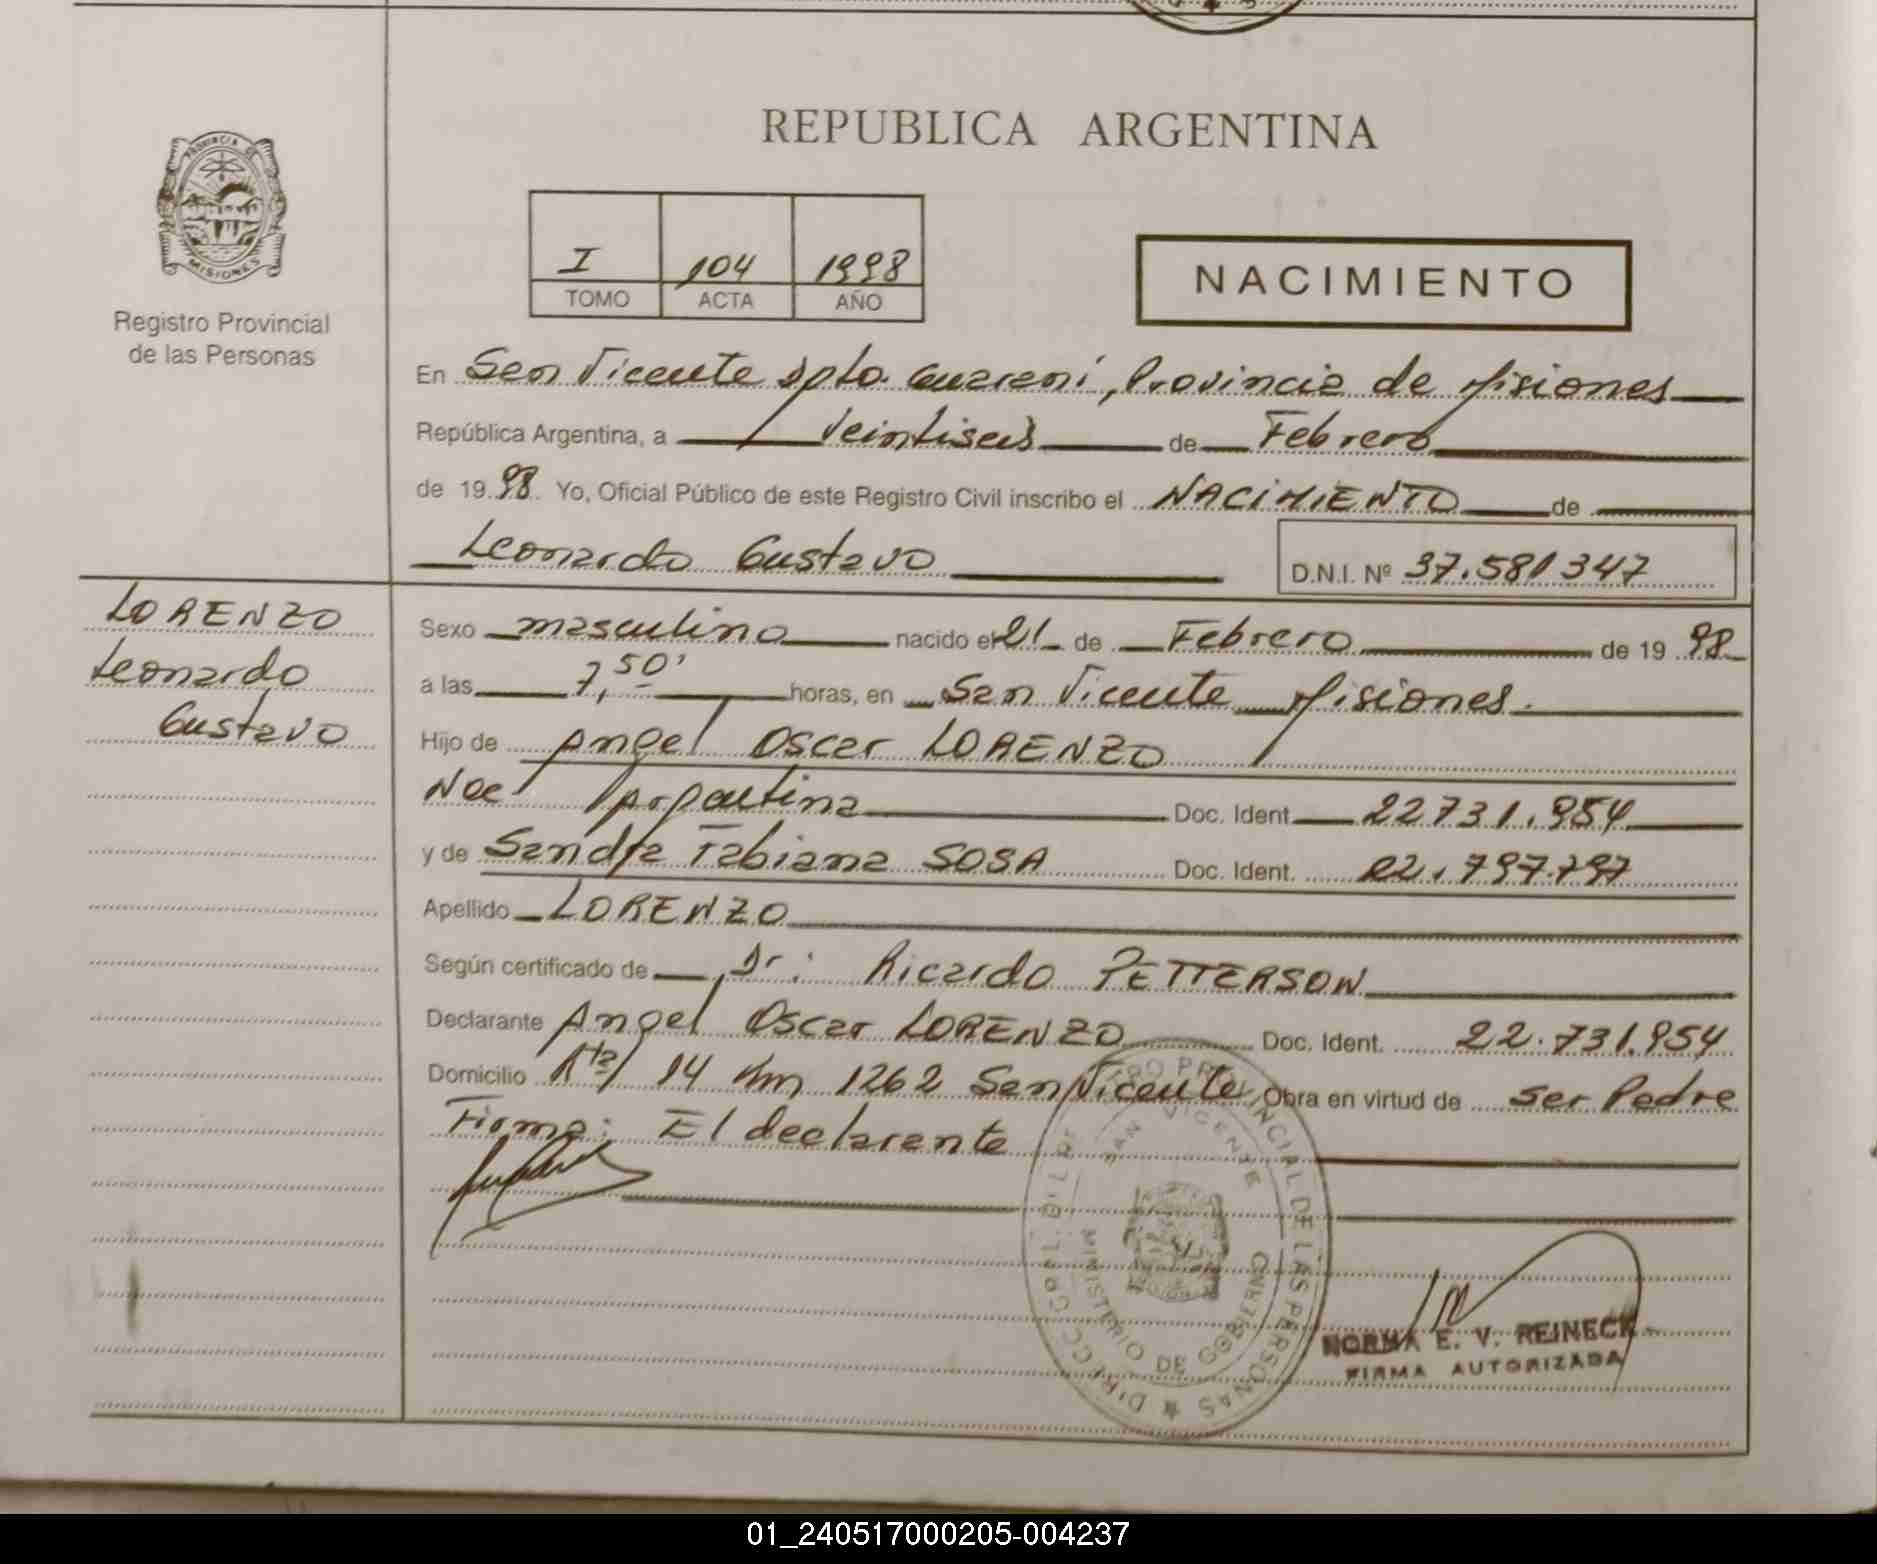 REPUBLICA ARGENTINA
PROVINCIA DE
MISIONES
Registro Provincial
de las Personas
I 104 1998
TOMO ACTA AÑO
NACIMIENTO
En San Vicente Dpto. Guarani, Provincia de Misiones
República Argentina, a Veintiseis de Febrero
de 1998 Yo, Oficial Público de este Registro Civil inscribo el NACIMIENTO de
Leonardo Gustavo D.N.I. Nº 37.581347
LORENZO
Leonardo
Gustavo
Sexo masculino nacido el 21 de Febrero de 1998
a las 7,50' horas, en San Vicente Misiones.
Hijo de Angel Oscar LORENZO
Nac Argentina Doc. Ident. 22731.954
y de Sandra Fabiana SOSA Doc. Ident. 22.797.797
Apellido LORENZO
Según certificado de Dr: Ricardo PETTERSON
Declarante Angel Oscar LORENZO Doc. Ident. 22.731.954
Domicilio Rta 14 Km 1262 San Vicente Obra en virtud de ser Padre
Firma: El declarante
SAN VICENTE
MINISTERIO DE GOBIERNO
NORMA E. V. REINECK
FIRMA AUTORIZADA
01_240517000205-004237